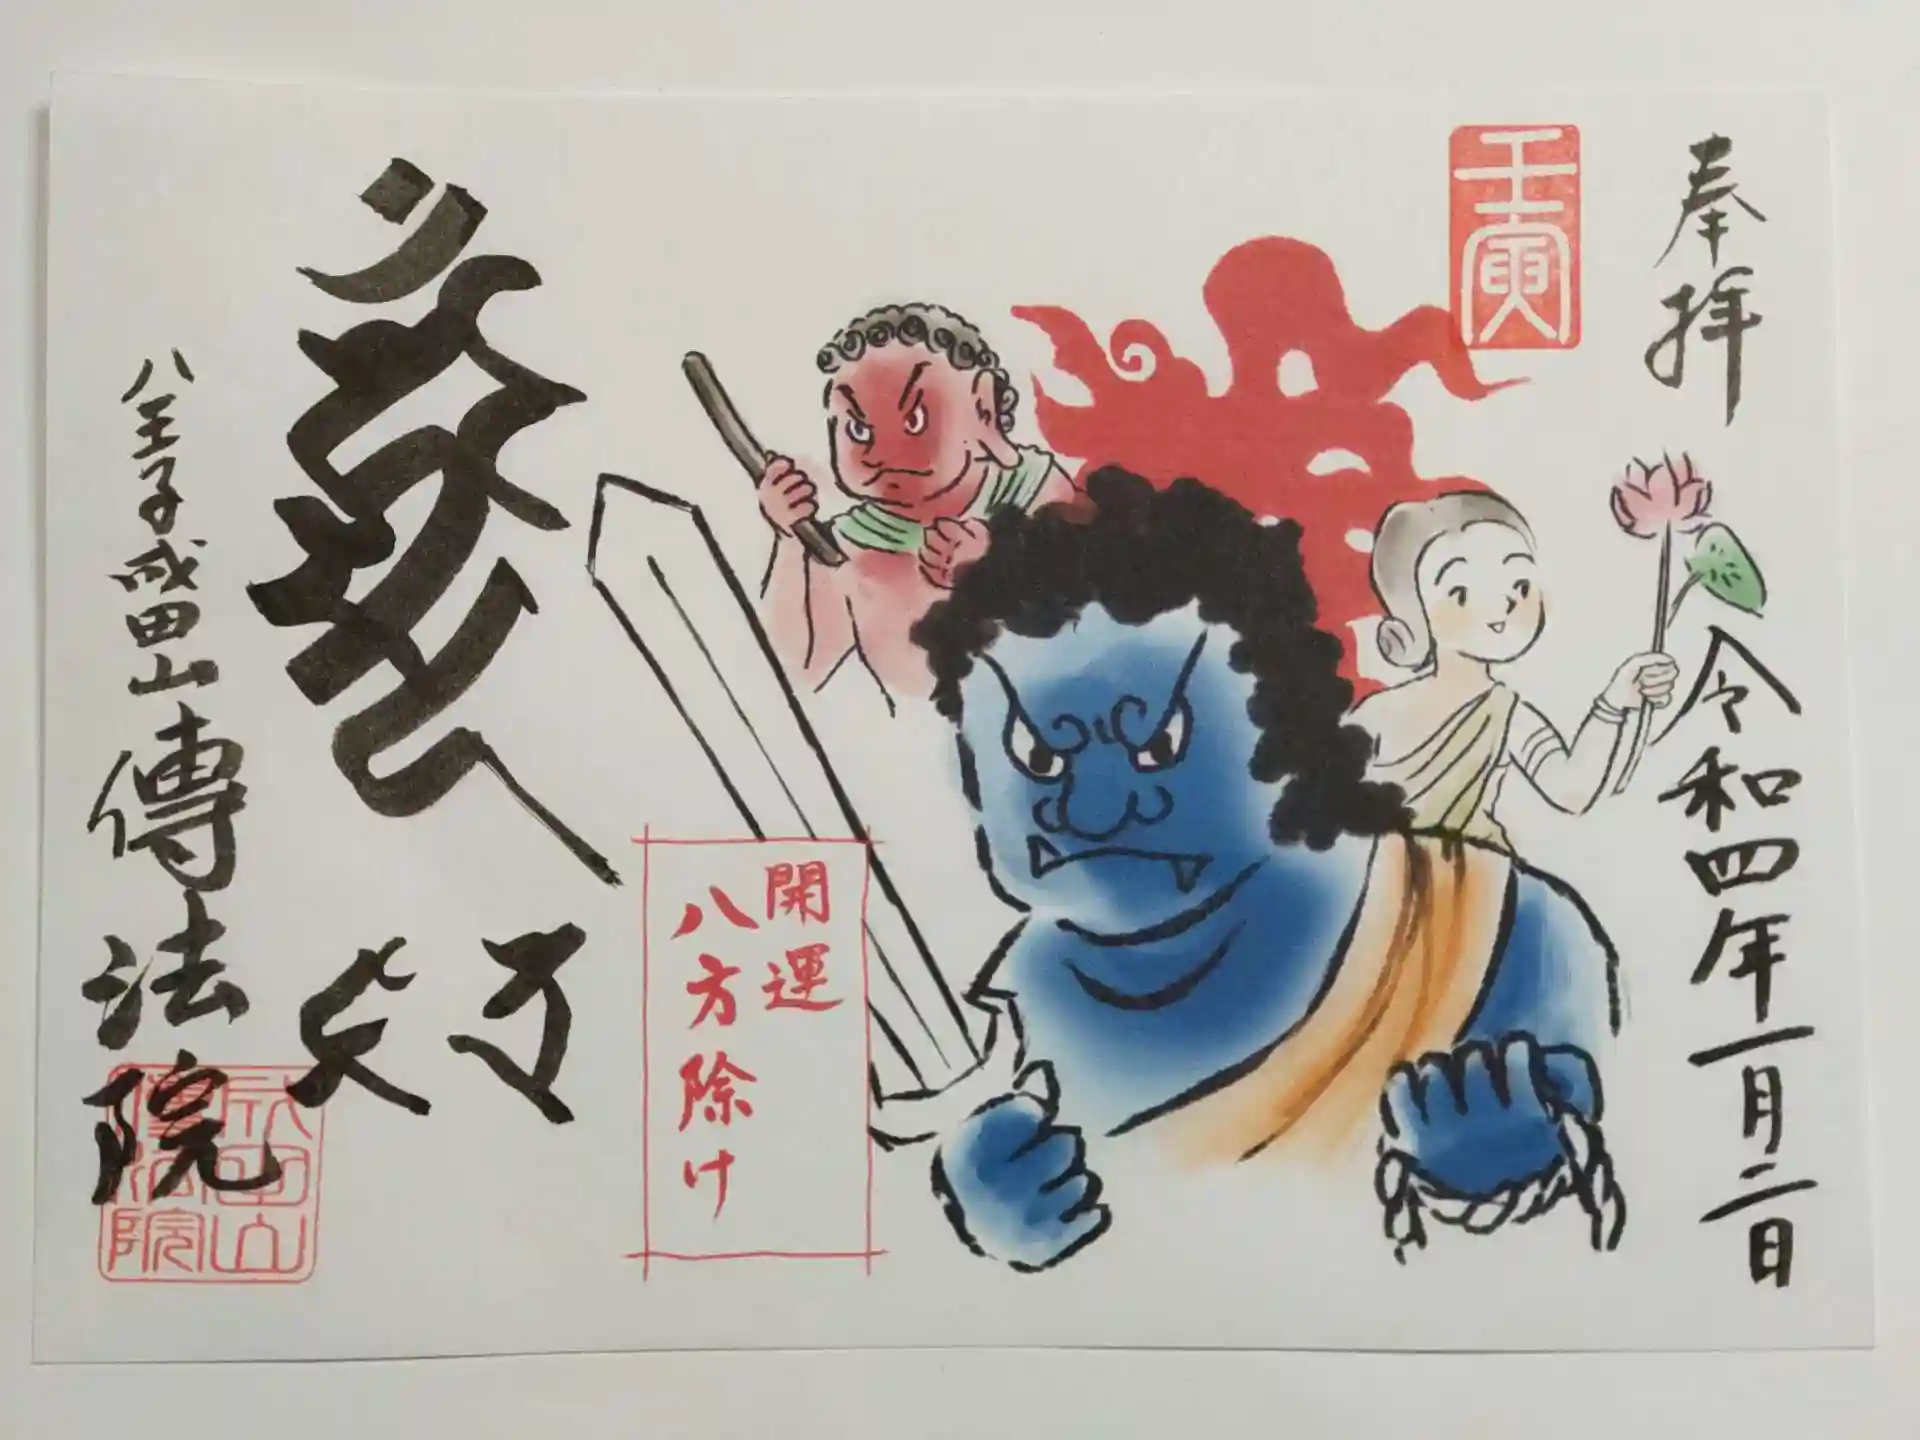 奉拝
令和四年一月二日
壬寅
開運
八方除け
八王子成田山傳法院
成田山
傳法院